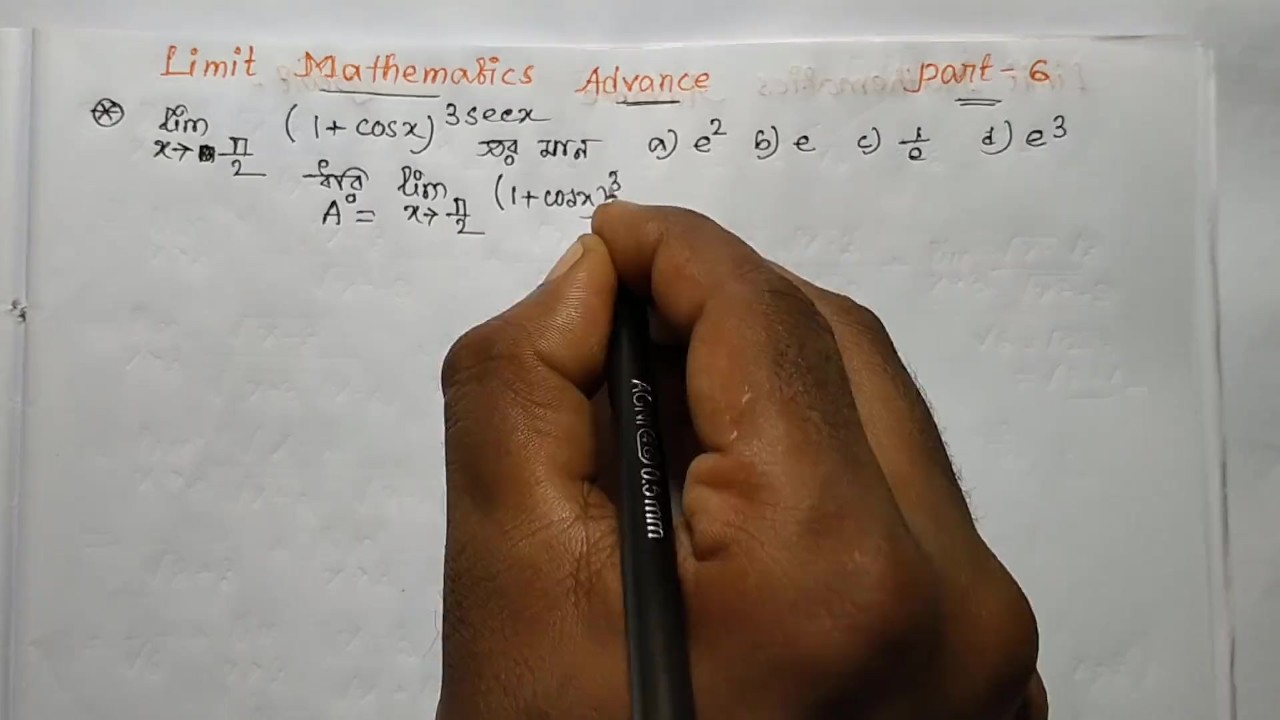 Limit Mathematics Advance Part-6
⊛ lim x→π/2 (1+cosx)^3secx এর মান a) e² b) e c) 1/e d) e³
ধরি A = lim x→π/2 (1+cosx)^3
0.5mm